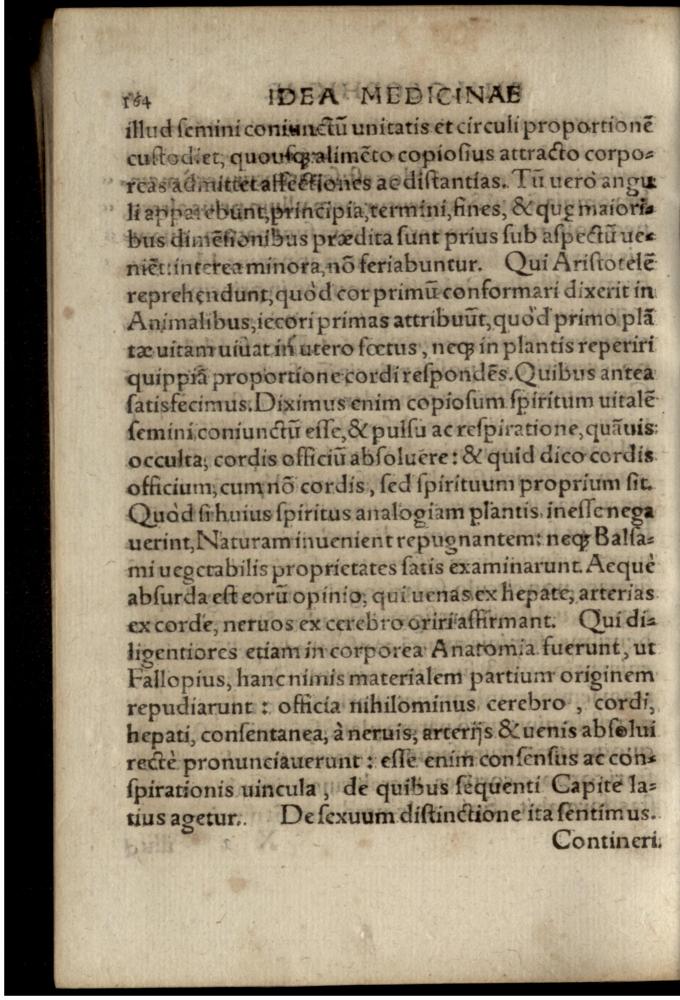 164 IDEA MEDICINAE
illud semini coniunctū unitatis et circuli proportionē
custodiet, quousq; alimēto copiosius attracto corpo=
reas admittet affectiones ac distantias. Tū uero angu
li apparebunt, principia, termini, fines, & quę maiori=
bus dimēsionibus prædita sunt prius sub aspectū ue=
niēt: interea minora, nō feriabuntur. Qui Aristotelē
reprehendunt, quòd cor primū conformari dixerit in
Animalibus, iecori primas attribuūt, quòd primo plā
tæ uitam uiuat in utero fœtus, neq; in plantis reperiri
quippiā proportione cordi respondēs. Quibus antea
satisfecimus. Diximus enim copiosum spiritum uitalē
semini coniunctū esse, & pulsu ac respiratione, quāuis
occulta, cordis officiū absoluere: & quid dico cordis
officium, cum nō cordis, sed spirituum proprium sit.
Quòd si huius spiritus analogiam plantis inesse nega
uerint, Naturam inuenient repugnantem: neq; Balsa=
mi uegetabilis proprietates satis examinarunt. Aequè
absurda est eorū opinio, qui uenas ex hepate, arterias
ex corde, neruos ex cerebro oriri affirmant. Qui di=
ligentiores etiam in corporea Anatomia fuerunt, ut
Fallopius, hanc nimis materialem partium originem
repudiarunt: officia nihilominus cerebro, cordi,
hepati, consentanea, à neruis, arterijs & uenis absolui
rectè pronunciauerunt: esse enim consensus ac con=
spirationis uincula, de quibus sequenti Capite la=
tius agetur. De sexuum distinctione ita sentimus.
Contineri